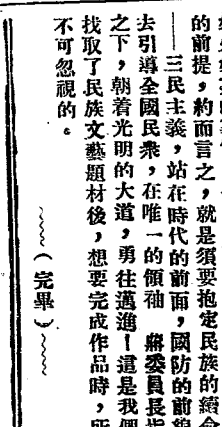 的前提，約而言之，就是須要抱定民族的續命
——三民主義，站在時代的前面，國防的前線
去引導全國民衆，在唯一的領袖　蔣委員長指
之下，朝着光明的大道，勇往邁進！這是我們
找取了民族文藝題材後，想要完成作品時，所
不可忽視的。
（完畢）